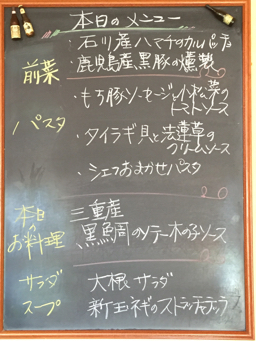 本日のメニュー
前菜
・石川産ハマチのカルパッチョ
・鹿児島産黒豚の燻製
パスタ
・もち豚ソーセージと小松菜の
トマトソース
・タイラギ貝と法蓮草の
クリームソース
・シェフおまかせパスタ
20
本日の
お料理
三重産
黒鯛のソテー木の子ソース
サラダ
大根サラダ
スープ
新玉ネギのストラッチャテッラ